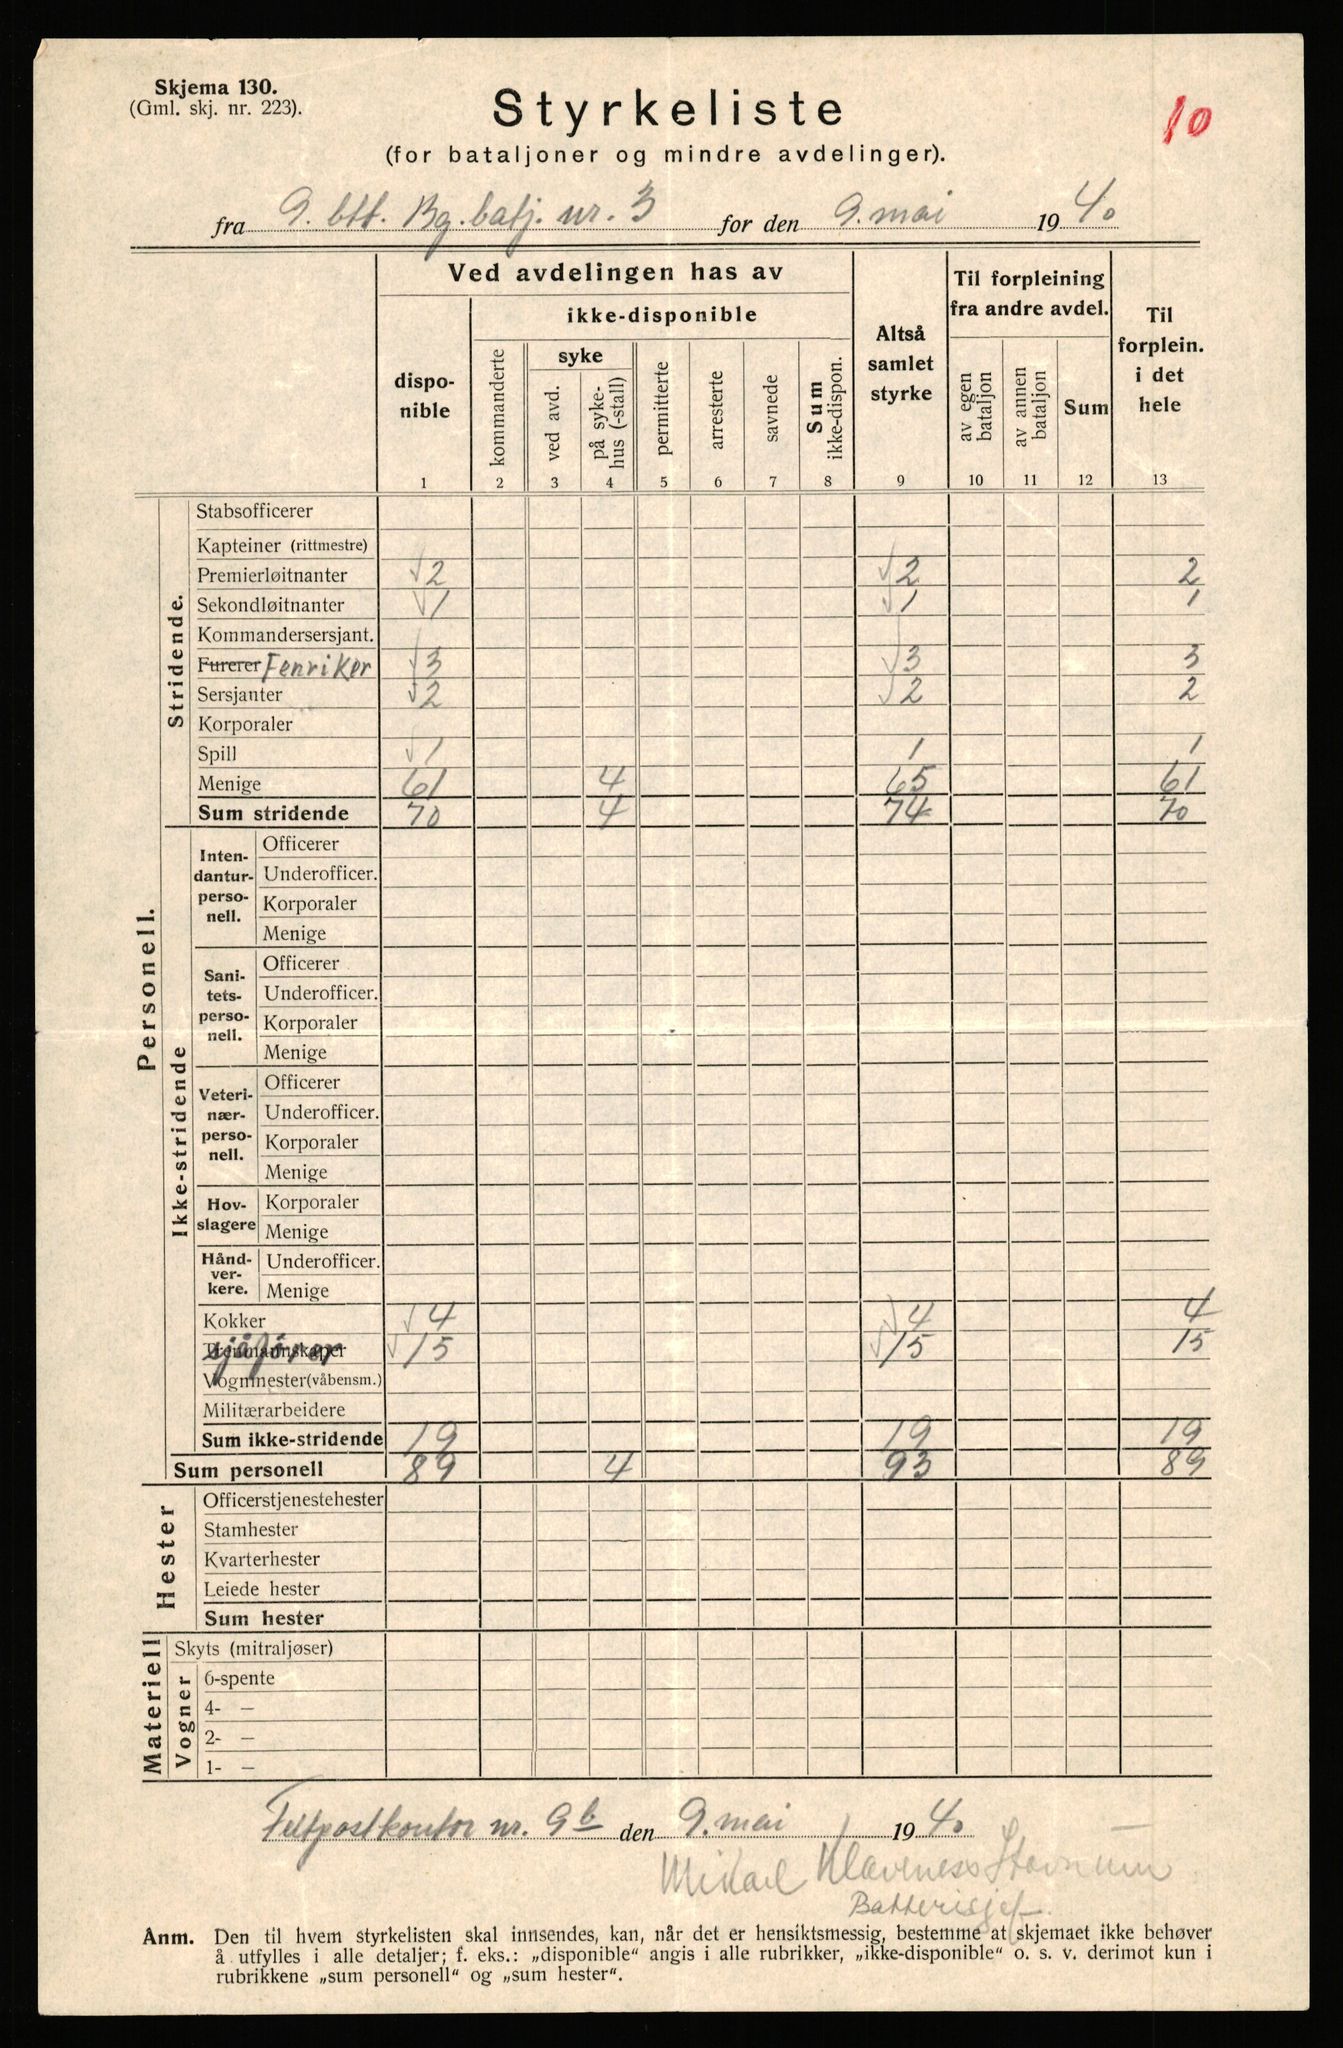 Skjema 130.
(Gml. skj. nr. 223).
Styrkeliste
10
(for bataljoner og mindre avdelinger).
fra 9. btt. Bg.batj. nr. 3 for den 9. mai 1940
Ved avdelingen has av
ikke-disponible
syke
dispo-
nible
kommanderte
ved avd.
på syke-
hus (-stall)
permitterte
arresterte
savnede
Sum
ikke-dispon.
Altså
samlet
styrke
Til forpleining
fra andre avdel.
av egen
bataljon
av annen
bataljon
Sum
Til
forplein.
i det
hele
1 2 3 4 5 6 7 8 9 10 11 12 13
Personell.
Stridende.
Stabsofficerer
Kapteiner (rittmestre)
Premierløitnanter √2 √2 2
Sekondløitnanter √1 √1 1
Kommandersersjant.
Furerer Fenriker √3 √3 3
Sersjanter √2 √2 2
Korporaler
Spill √1 1 1
Menige 61 4 65 61
Sum stridende 70 4 74 70
Ikke-stridende
Inten-
dantur-
perso-
nell.
Officerer
Underofficer.
Korporaler
Menige
Sani-
tets-
perso-
nell.
Officerer
Underofficer.
Korporaler
Menige
Veteri-
nær-
perso-
nell.
Officerer
Underofficer.
Korporaler
Menige
Hov-
slagere
Korporaler
Menige
Hånd-
ver-
kere.
Underofficer.
Menige
Kokker √4 √4 4
Trenmannskaper sjåfører √15 √15 15
Vognmester (våbensm.)
Militærarbeidere
Sum ikke-stridende 19 19 19
Sum personell 89 4 93 89
Hester
Officerstjenestehester
Stamhester
Kvarterhester
Leiede hester
Sum hester
Materiell
Skyts (mitraljøser)
Vogner
6-spente
4- —
2- —
1- —
Feltpostkontor nr. 9b den 9. mai 1940
Mikael Klaveness Stavnum
Batterisjef.
Anm. Den til hvem styrkelisten skal innsendes, kan, når det er hensiktsmessig, bestemme at skjemaet ikke behøver
å utfylles i alle detaljer; f. eks.: „disponible“ angis i alle rubrikker, „ikke-disponible“ o. s. v. derimot kun i
rubrikkene „sum personell“ og „sum hester“.